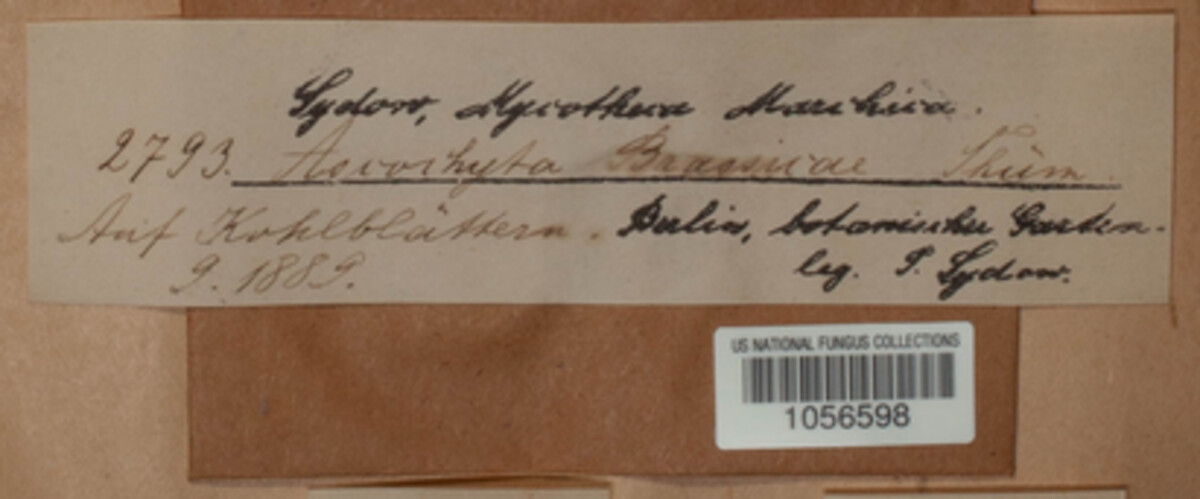 Sydow, Mycotheca Marchica.
2793. Ascochyta Brassicae Thüm.
Auf Kohlblättern. Berlin, botanischer Garten.
9. 1889. leg. P. Sydow.
US NATIONAL FUNGUS COLLECTIONS
1056598